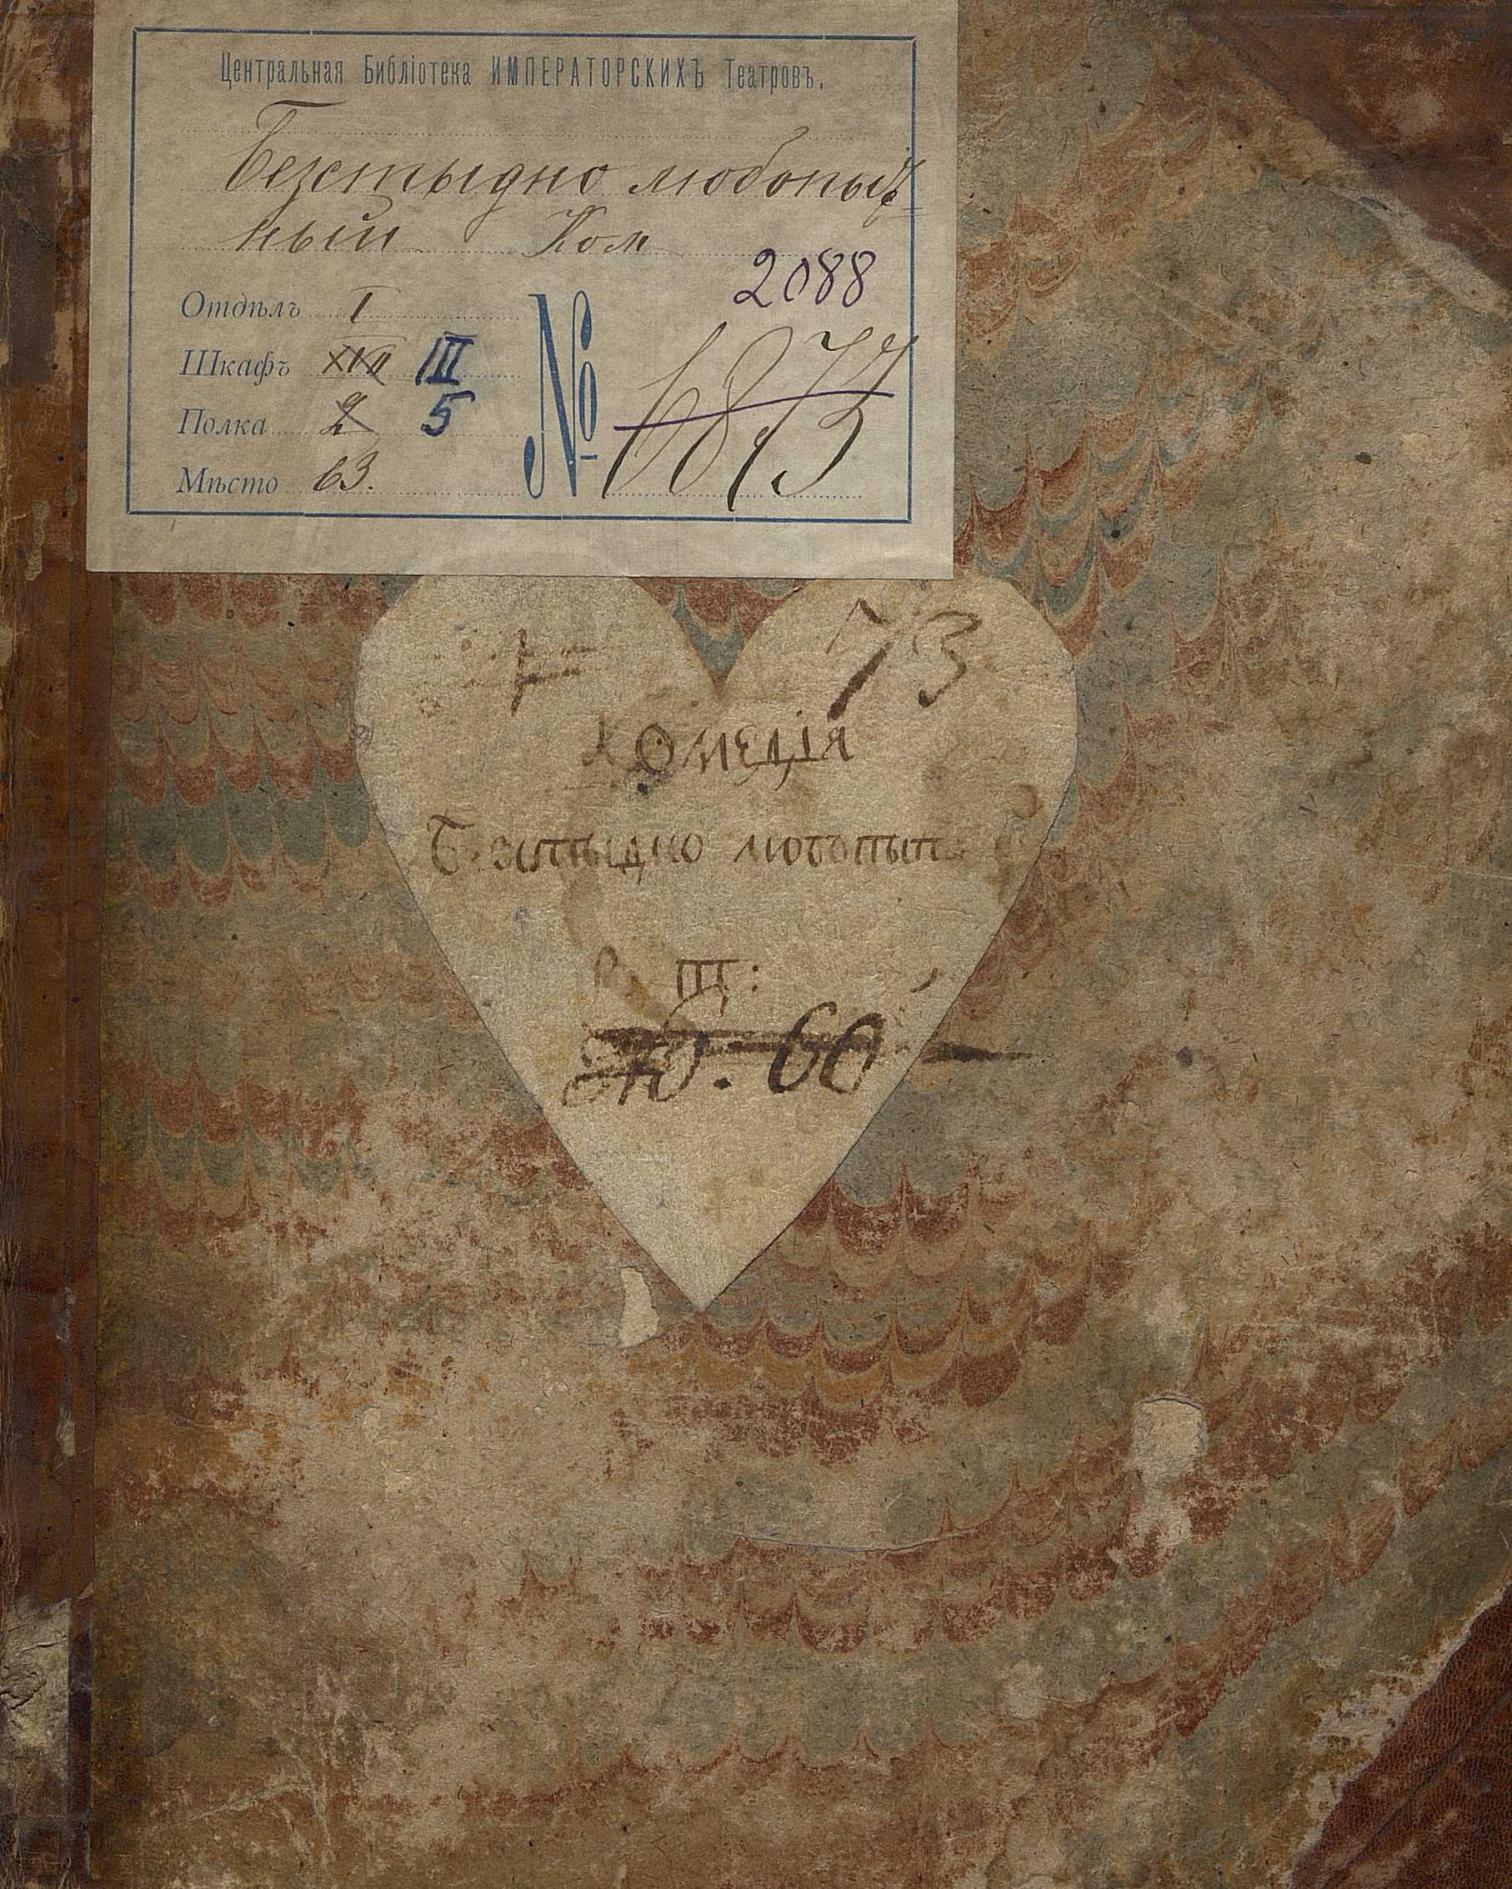 Центральная Библіотека ИМПЕРАТОРСКИХЪ Театровъ.
Безстыдно любопыт-
ный Ком
2088
Отдѣлъ I
Шкафъ XVII III
Полка 2 5
Мѣсто 63.
№
73
КОМЕДІЯ
Безстыдно любопытн
III:
60